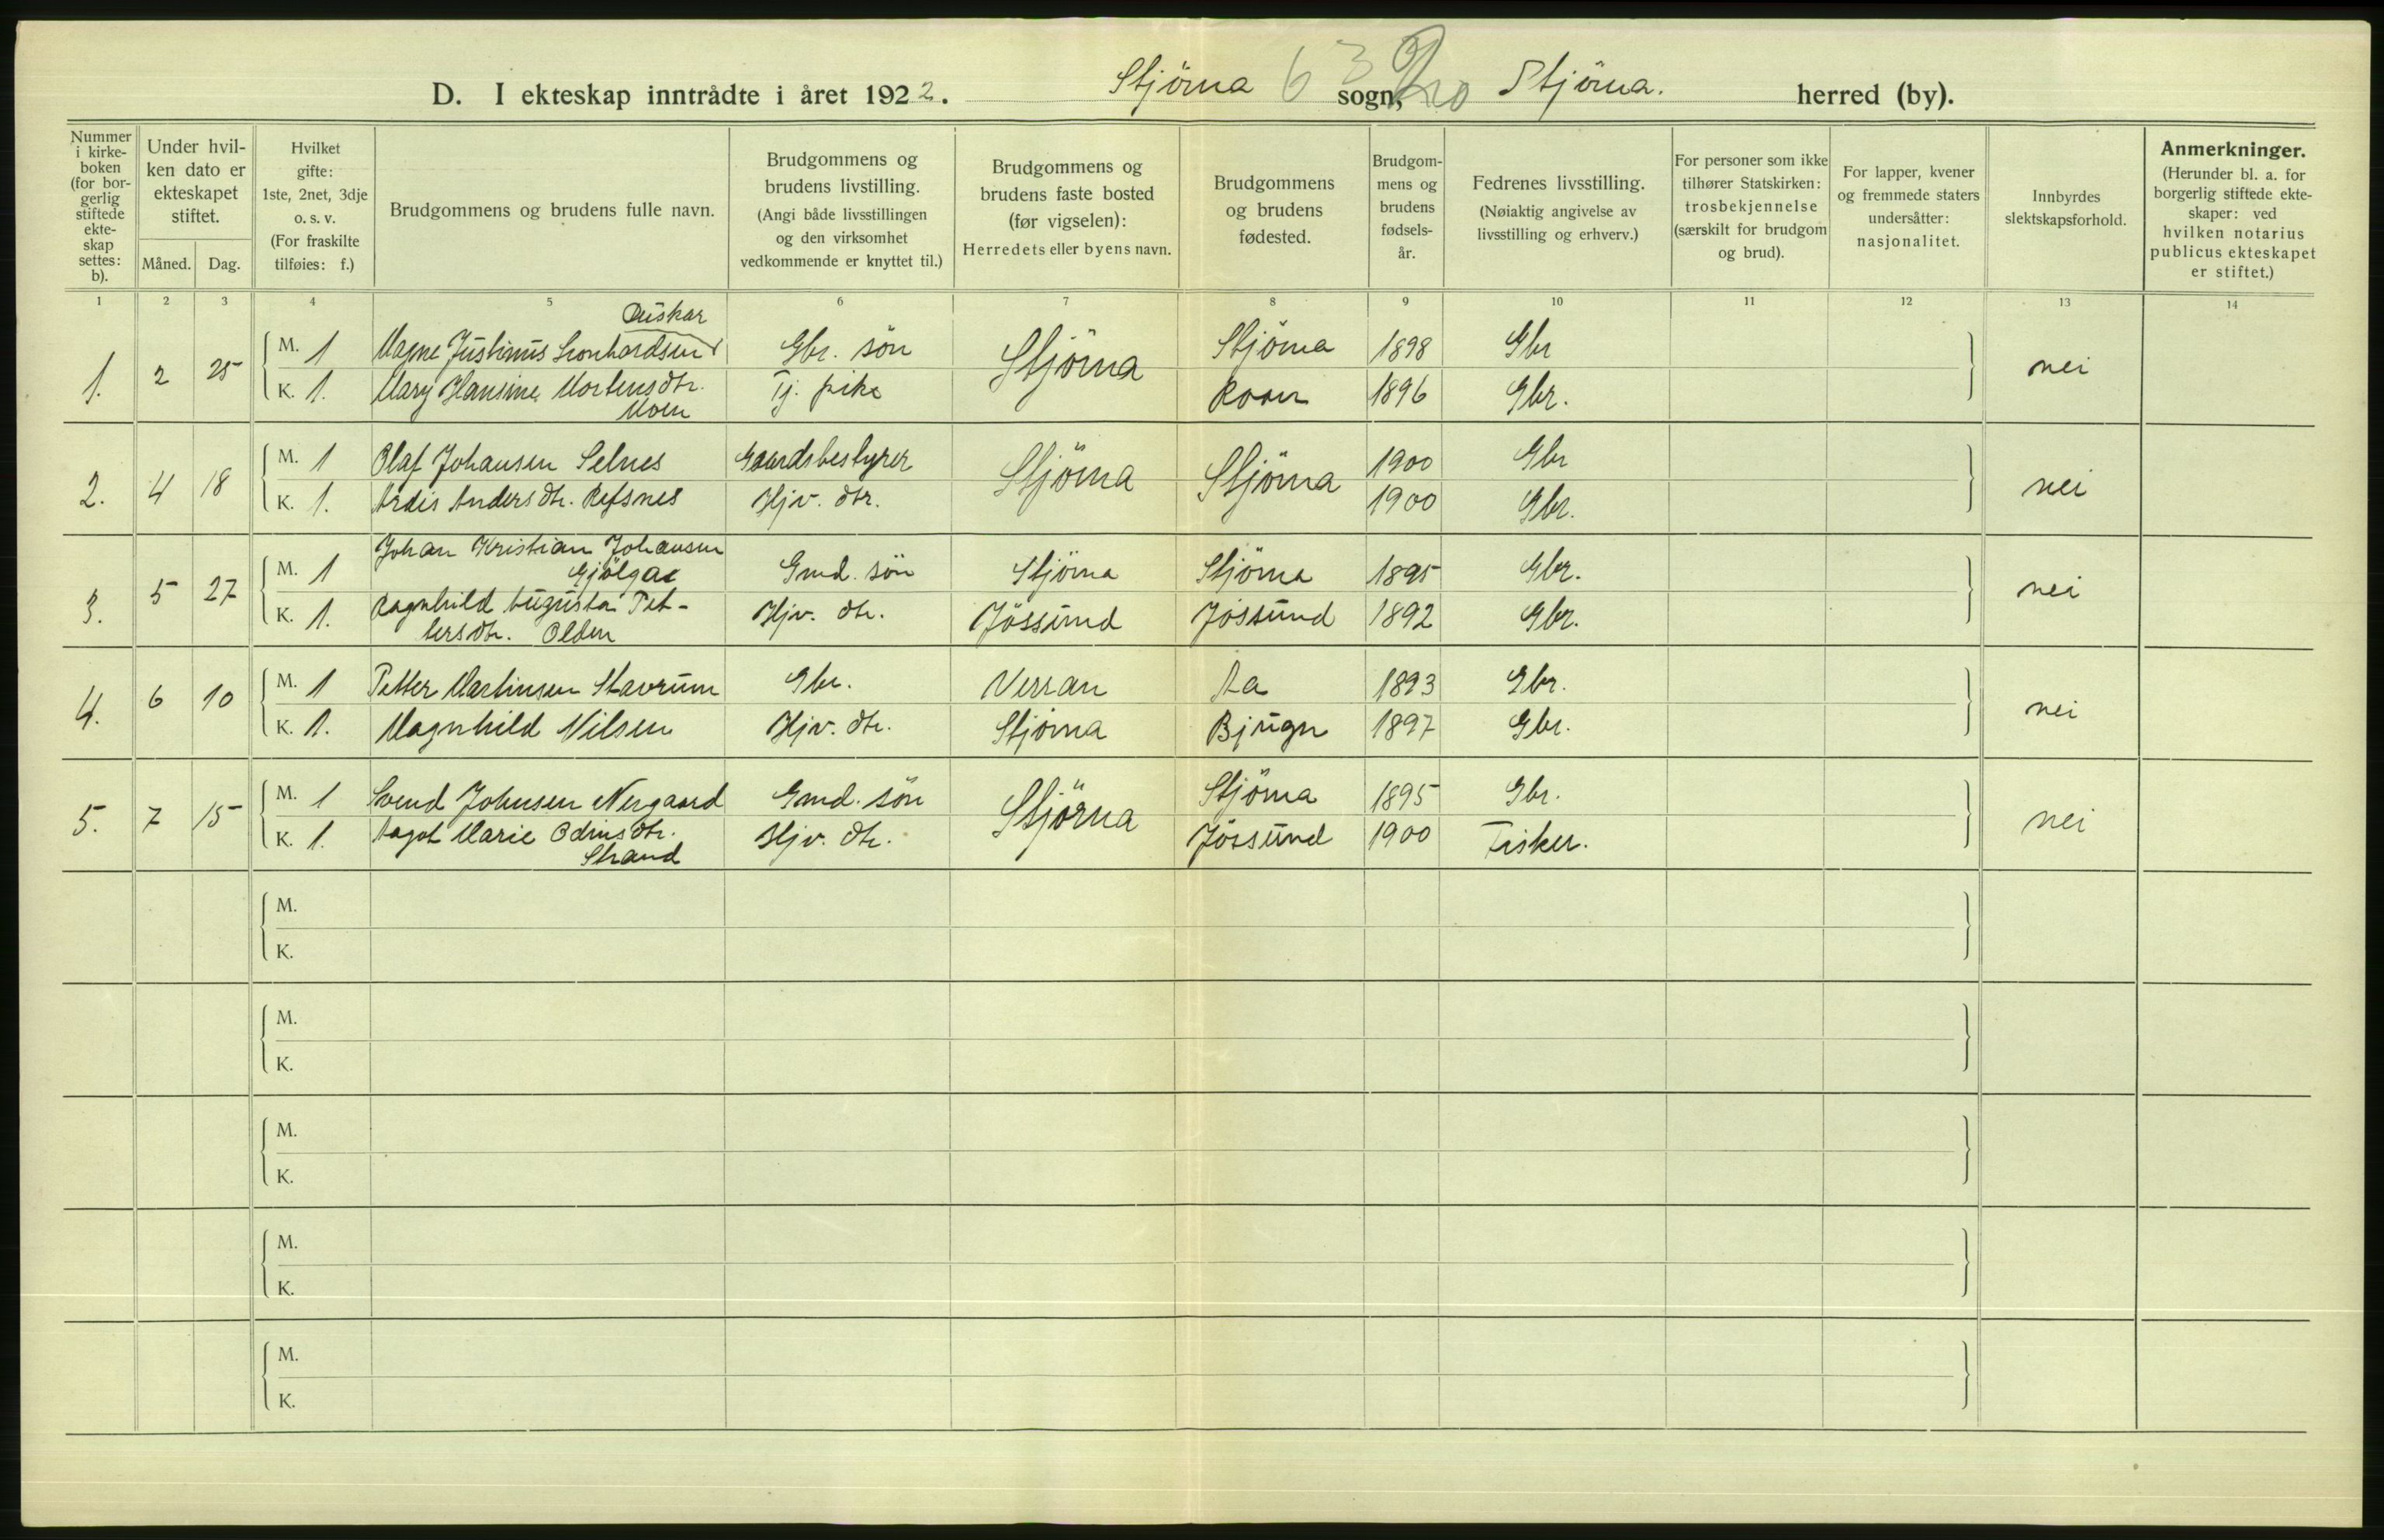 D. I ekteskap inntrådte i året 1922. Stjörna sogn, Stjörna. herred (by).
6 3 20
Nummer i kirkeboken (for borgerlig stiftede ekteskap settes: b).
Under hvilken dato er ekteskapet stiftet.
Måned. Dag.
Hvilket gifte: 1ste, 2net, 3dje o. s. v. (For fraskilte tilføies: f.)
Brudgommens og brudens fulle navn.
Brudgommens og brudens livstilling. (Angi både livsstillingen og den virksomhet vedkommende er knyttet til.)
Brudgommens og brudens faste bosted (før vigselen): Herredets eller byens navn.
Brudgommens og brudens fødested.
Brudgommens og brudens fødselsår.
Fedrenes livsstilling. (Nøiaktig angivelse av livsstilling og erhverv.)
For personer som ikke tilhører Statskirken: trosbekjennelse (særskilt for brudgom og brud).
For lapper, kvener og fremmede staters undersåtter: nasjonalitet.
Innbyrdes slektskapsforhold.
Anmerkninger. (Herunder bl. a. for borgerlig stiftede ekteskaper: ved hvilken notarius publicus ekteskapet er stiftet.)
1 2 3 4 5 6 7 8 9 10 11 12 13 14
1. 2 25 M. 1 Magne Justinus Leonhardsen Gbr. sön Stjörna Stjörna 1898 Gbr nei
K. 1. Mary Hansine Mortensdtr. Moen Tj. pike Roan 1896 Gbr.
2. 4 18 M. 1 Olaf Johansen Selnes Gaardsbestyrer Stjörna Stjörna 1900 Gbr nei
K. 1. Ardis Andersdtr. Refsnes Hjv. dtr. 1900 Gbr.
3. 5 27 M. 1 Johan Kristian Johansen
Gjölga Gmd. sön Stjörna Stjörna 1895 Gbr. nei
K. 1. Ragnhild Augusta Pet-
tersdtr. Olden Hjv. dtr. Jössund Jössund 1892 Gbr.
4. 6 10 M. 1 Petter Martinsen Stavrum Gbr. Verran Aa 1893 Gbr. nei
K. 1. Magnhild Nilsen Hjv. dtr. Stjörna Bjugn 1897 Gbr.
5. 7 15 M. 1 Svend Johnsen Nergaard Gmd. sön Stjörna Stjörna 1895 Gbr. nei
K. 1. Aagot Marie Odinsdtr.
Strand Hjv. dtr. Jössund 1900 Fisker.
M.
K.
M.
K.
M.
K.
M.
K.
M.
K.